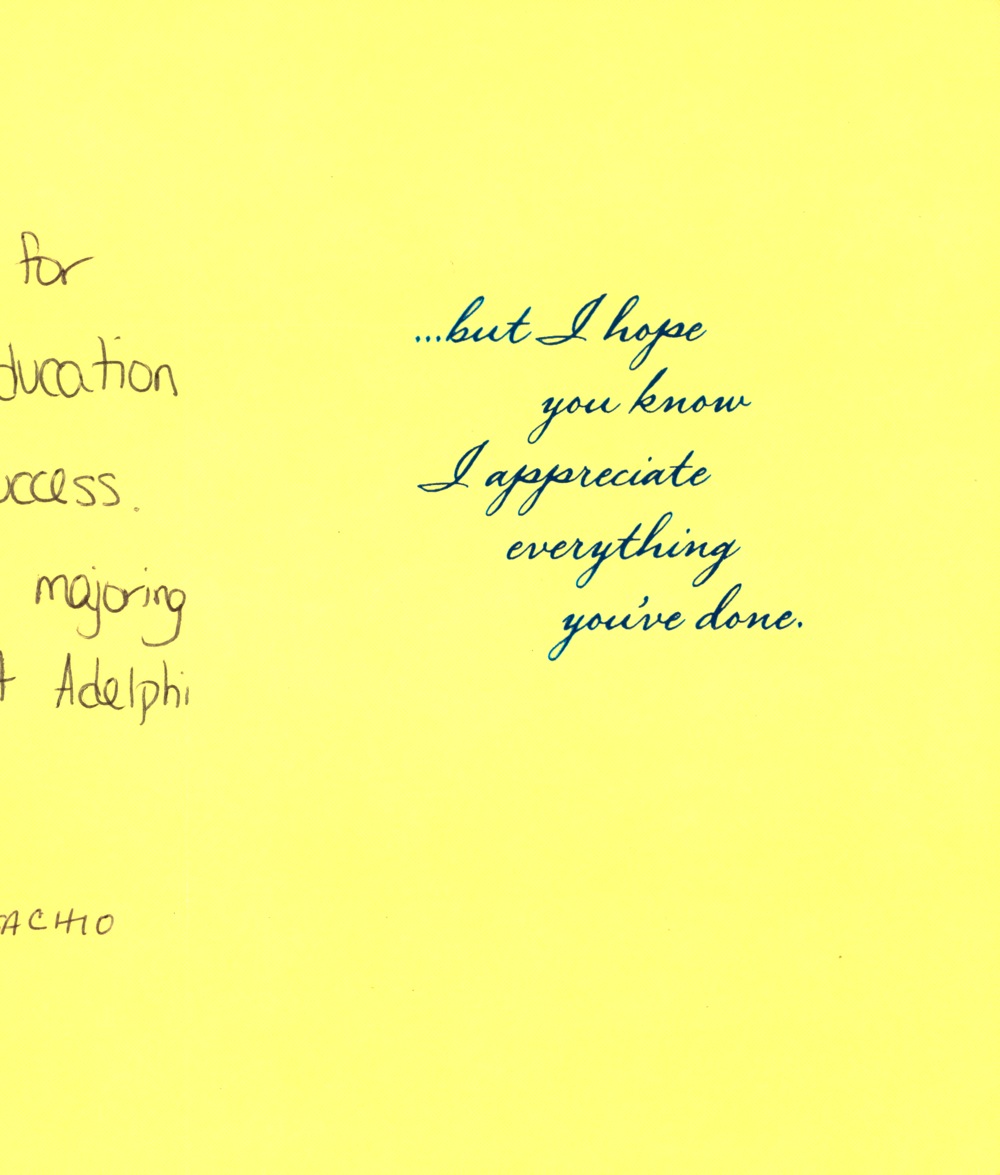 for
ducation
uccess.
majoring
Adelphi
ACHIO
...but I hope
you know
I appreciate
everything
you've done.